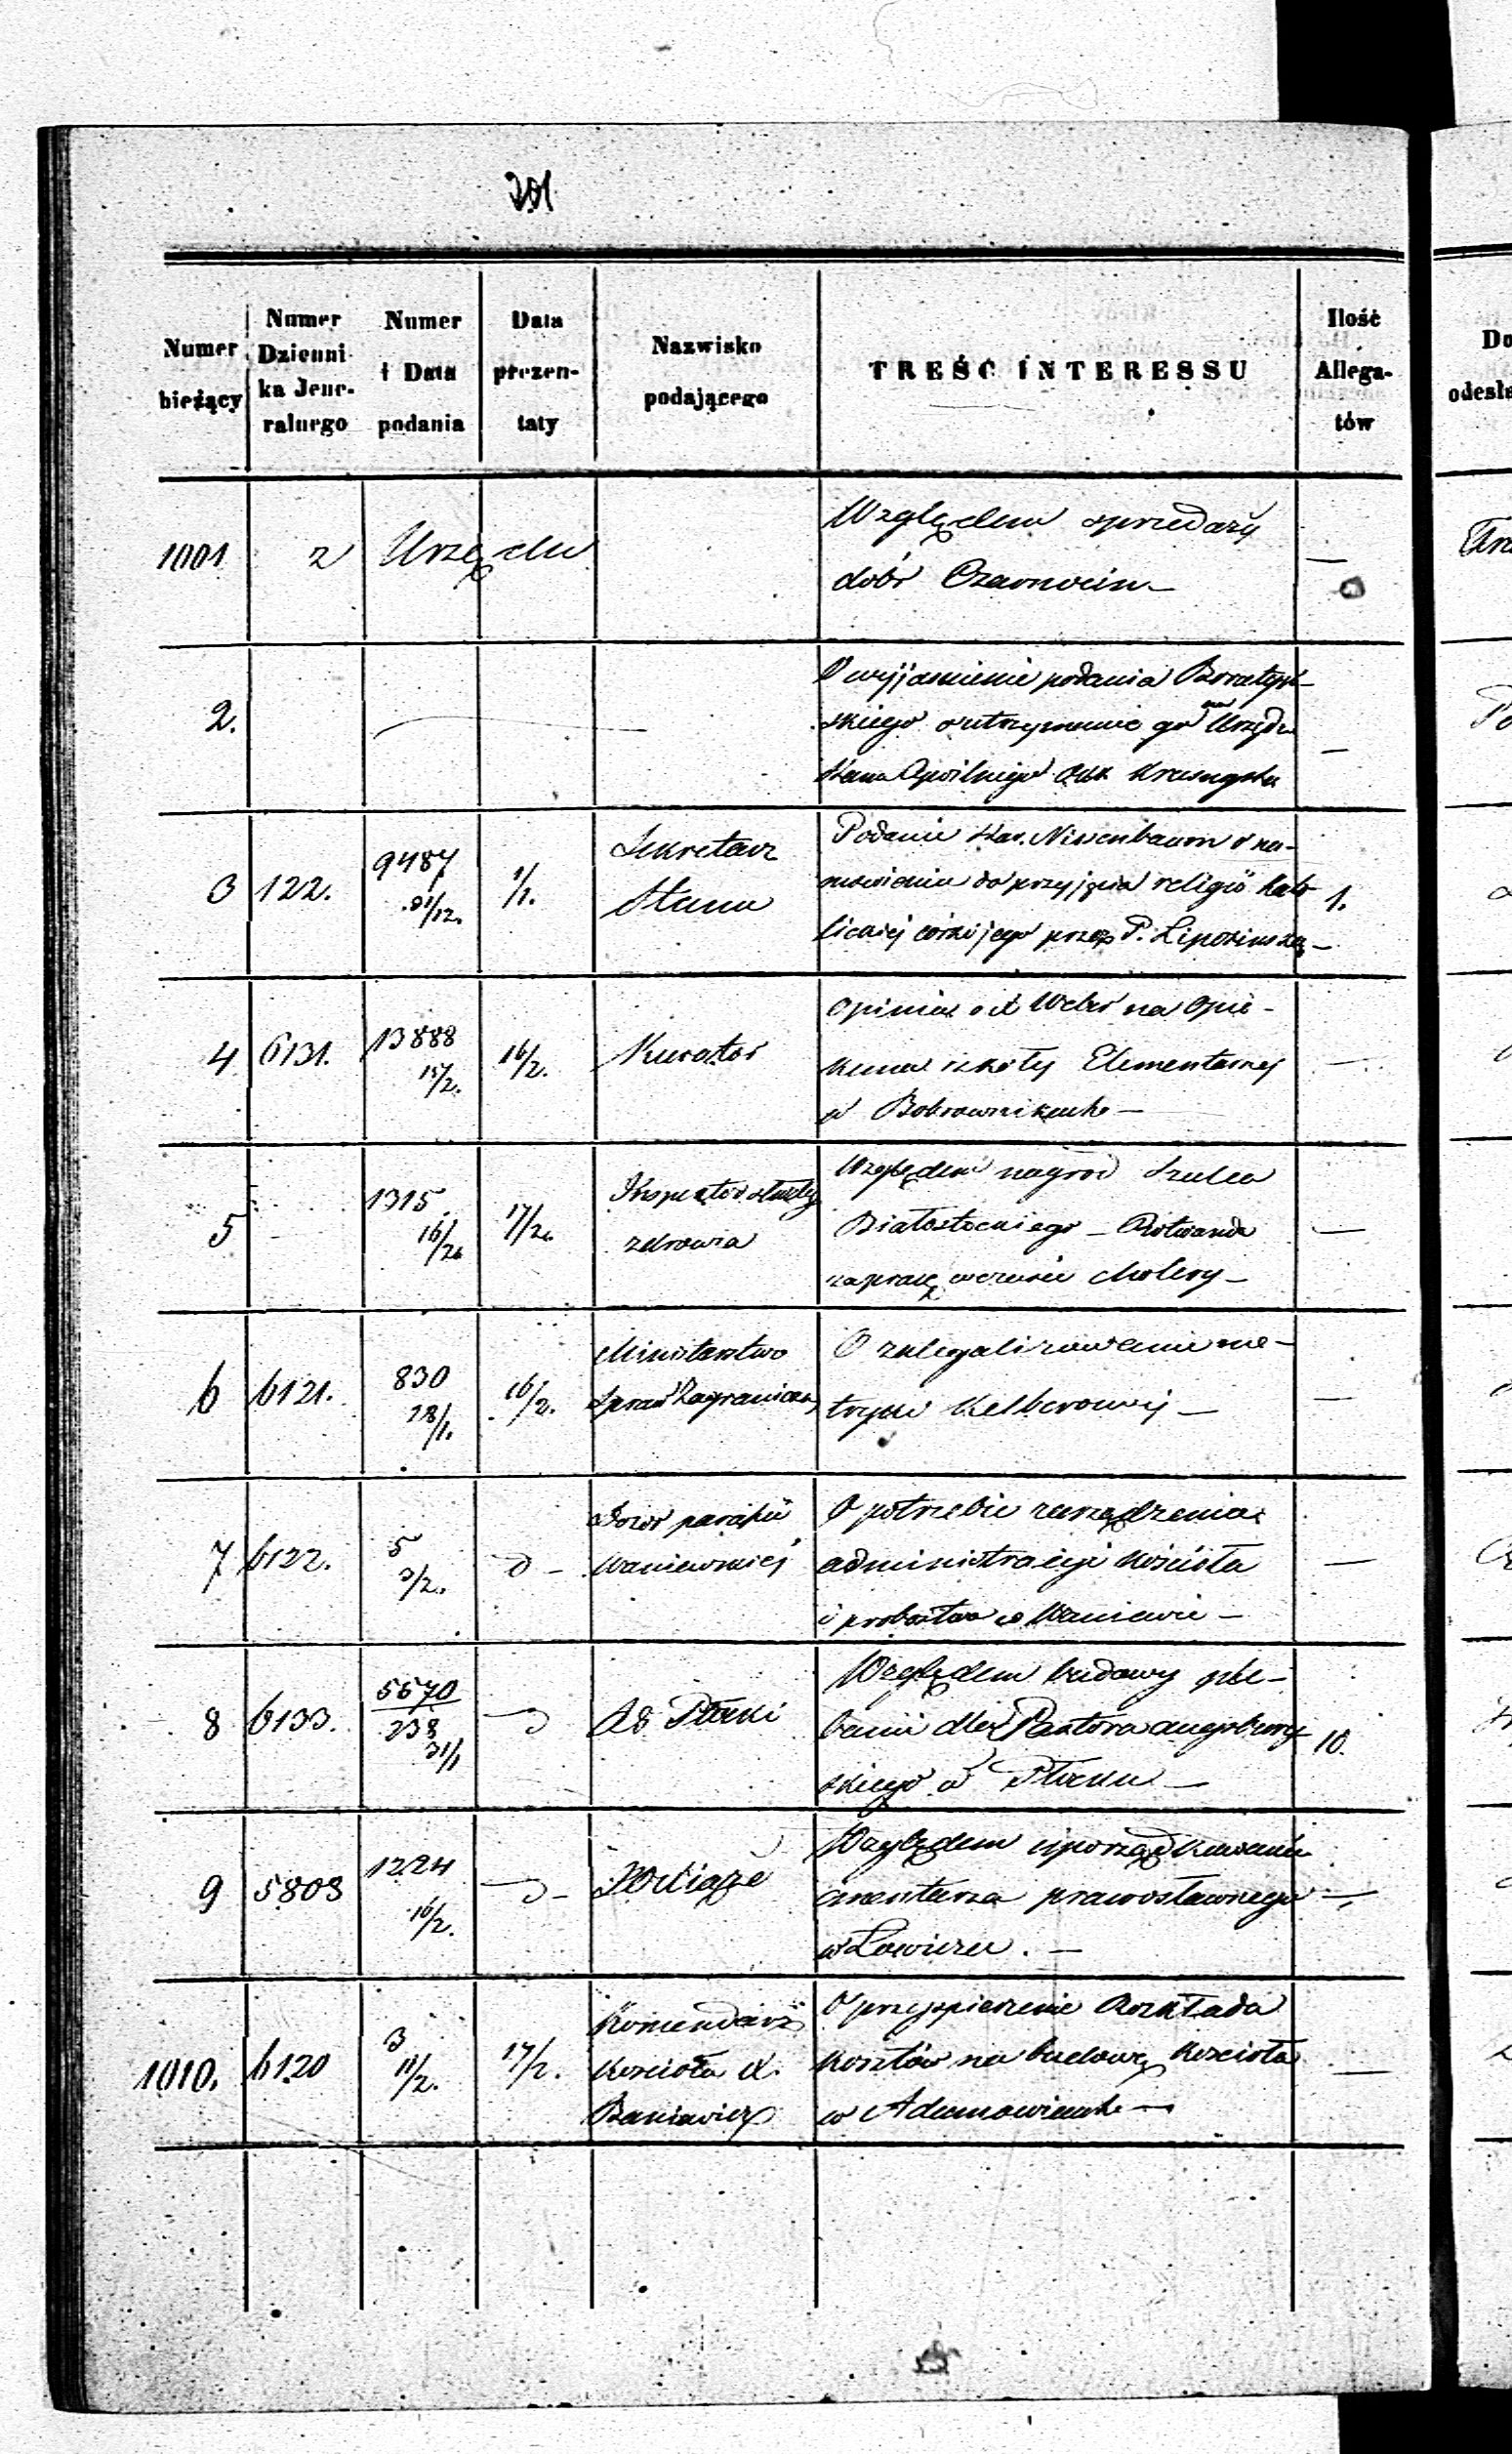 201
Numer bieżący
Numer Dziennika Jeneralnego
Numer i Data podania
Data prezentaty
Nazwisko podającego
TREŚĆ INTERESSU
Ilość Allegatów
1001 z Urzędu
Względem sprzedaży
dobr Czarnocin —
2.
O wyjaśnienie podania Boratyń-
skiego o utrzymanie go Urzędn
Stanu Cywilnego —
3 122. 9487 31/12. 1/1.
Sekretarz
Stanu
Podanie Nissenbaum o na-
mówieniu do przyjęcia religii kato
lickiej córki jego przez P. Liposinską — 1.
4 6131. 13888 15/2. 16/2.
Kurator
Opinia od na Opie-
kuna szkoły Elementarnej
w Bobrownikach — —
5 - 1315 16/2. 17/2.
Inspektor służby
zdrowia
Względem nagrod Szulca
Białostockiego — Rotwanda
za pracę w czasie cholery — —
6 6121. 830 28/1. 16/2.
Ministerstwo
Spraw Zagranicznych
O zalegalizowanie me-
tryki Kelberowej — —
7 6122. 5 3/2. d -
Dozór parafii
Waniewskiej
O potrzebie zarządzenia
administracyi Kościoła
i probostwa w Waniewie — —
8 6133. 5570 238 31/1 — d
RG Płocki
Względem budowy ple-
banii dla Pastora augsburg
skiego w Płocku — 10.
9 5803 1224 16/2. — d -
Względem uporządkowania
cmentarza prawosławnego —
w Łowiczu. —
1010. 6120 3 11/2. 17/2.
Komendarz
Kościoła X.
Baniewicz
O przyspieszenie Rozkłada
kosztów na budowę Kościoła
w Adamowicach — —